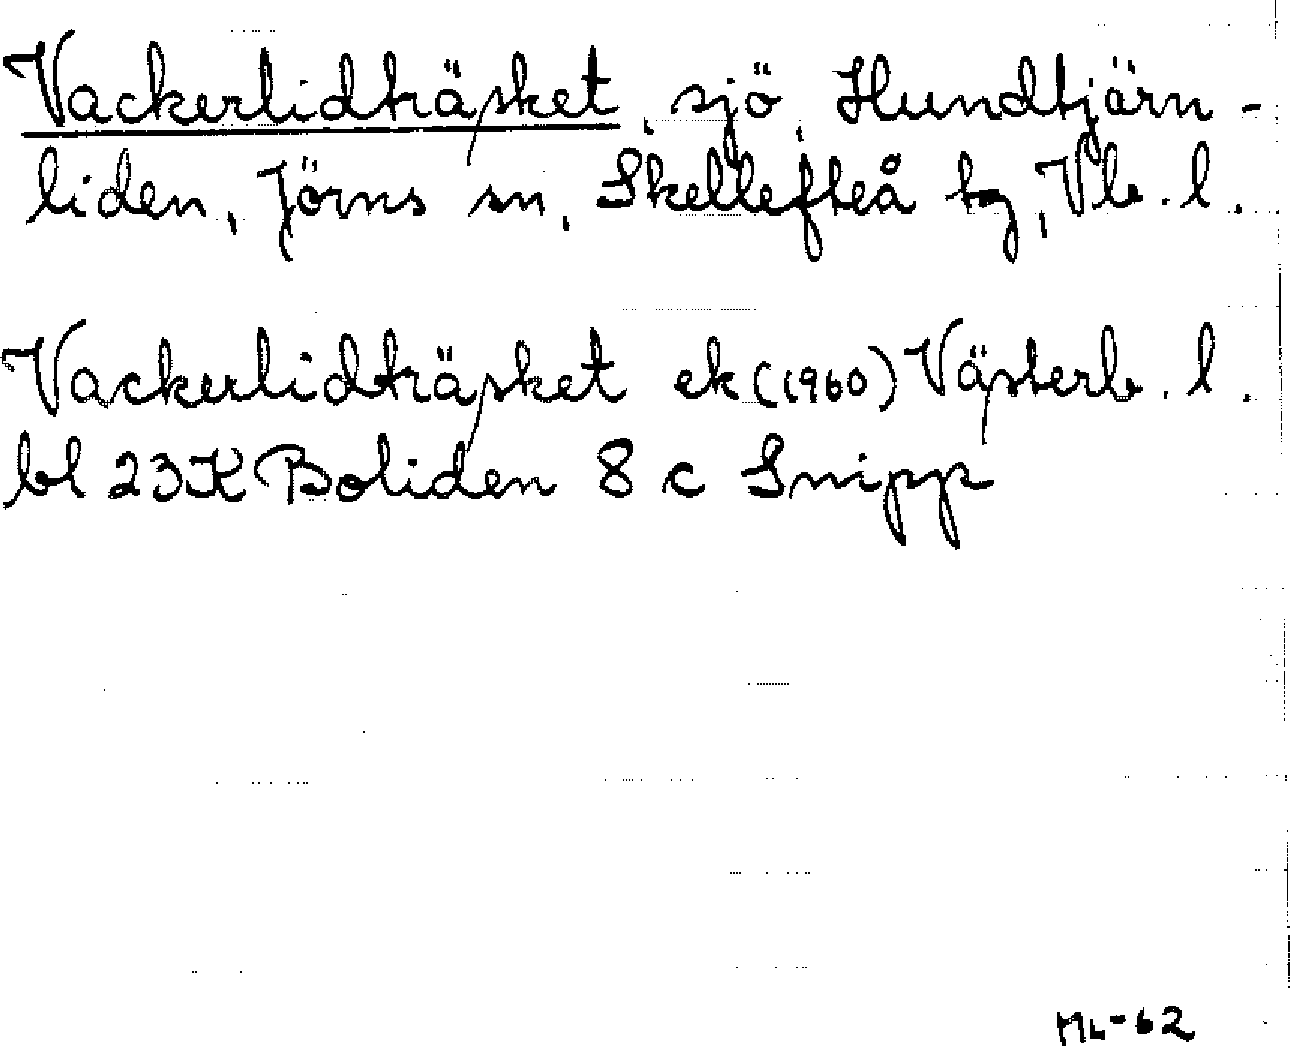 Vackerlidträsket, sjö, Hundtjärn-
liden, Jörns sn, Skellefteå tg, Vb. l.
Vackerlidträsket ek (1960) Västerb. l.
bl 23K Boliden 8 c Snipp
ML-62